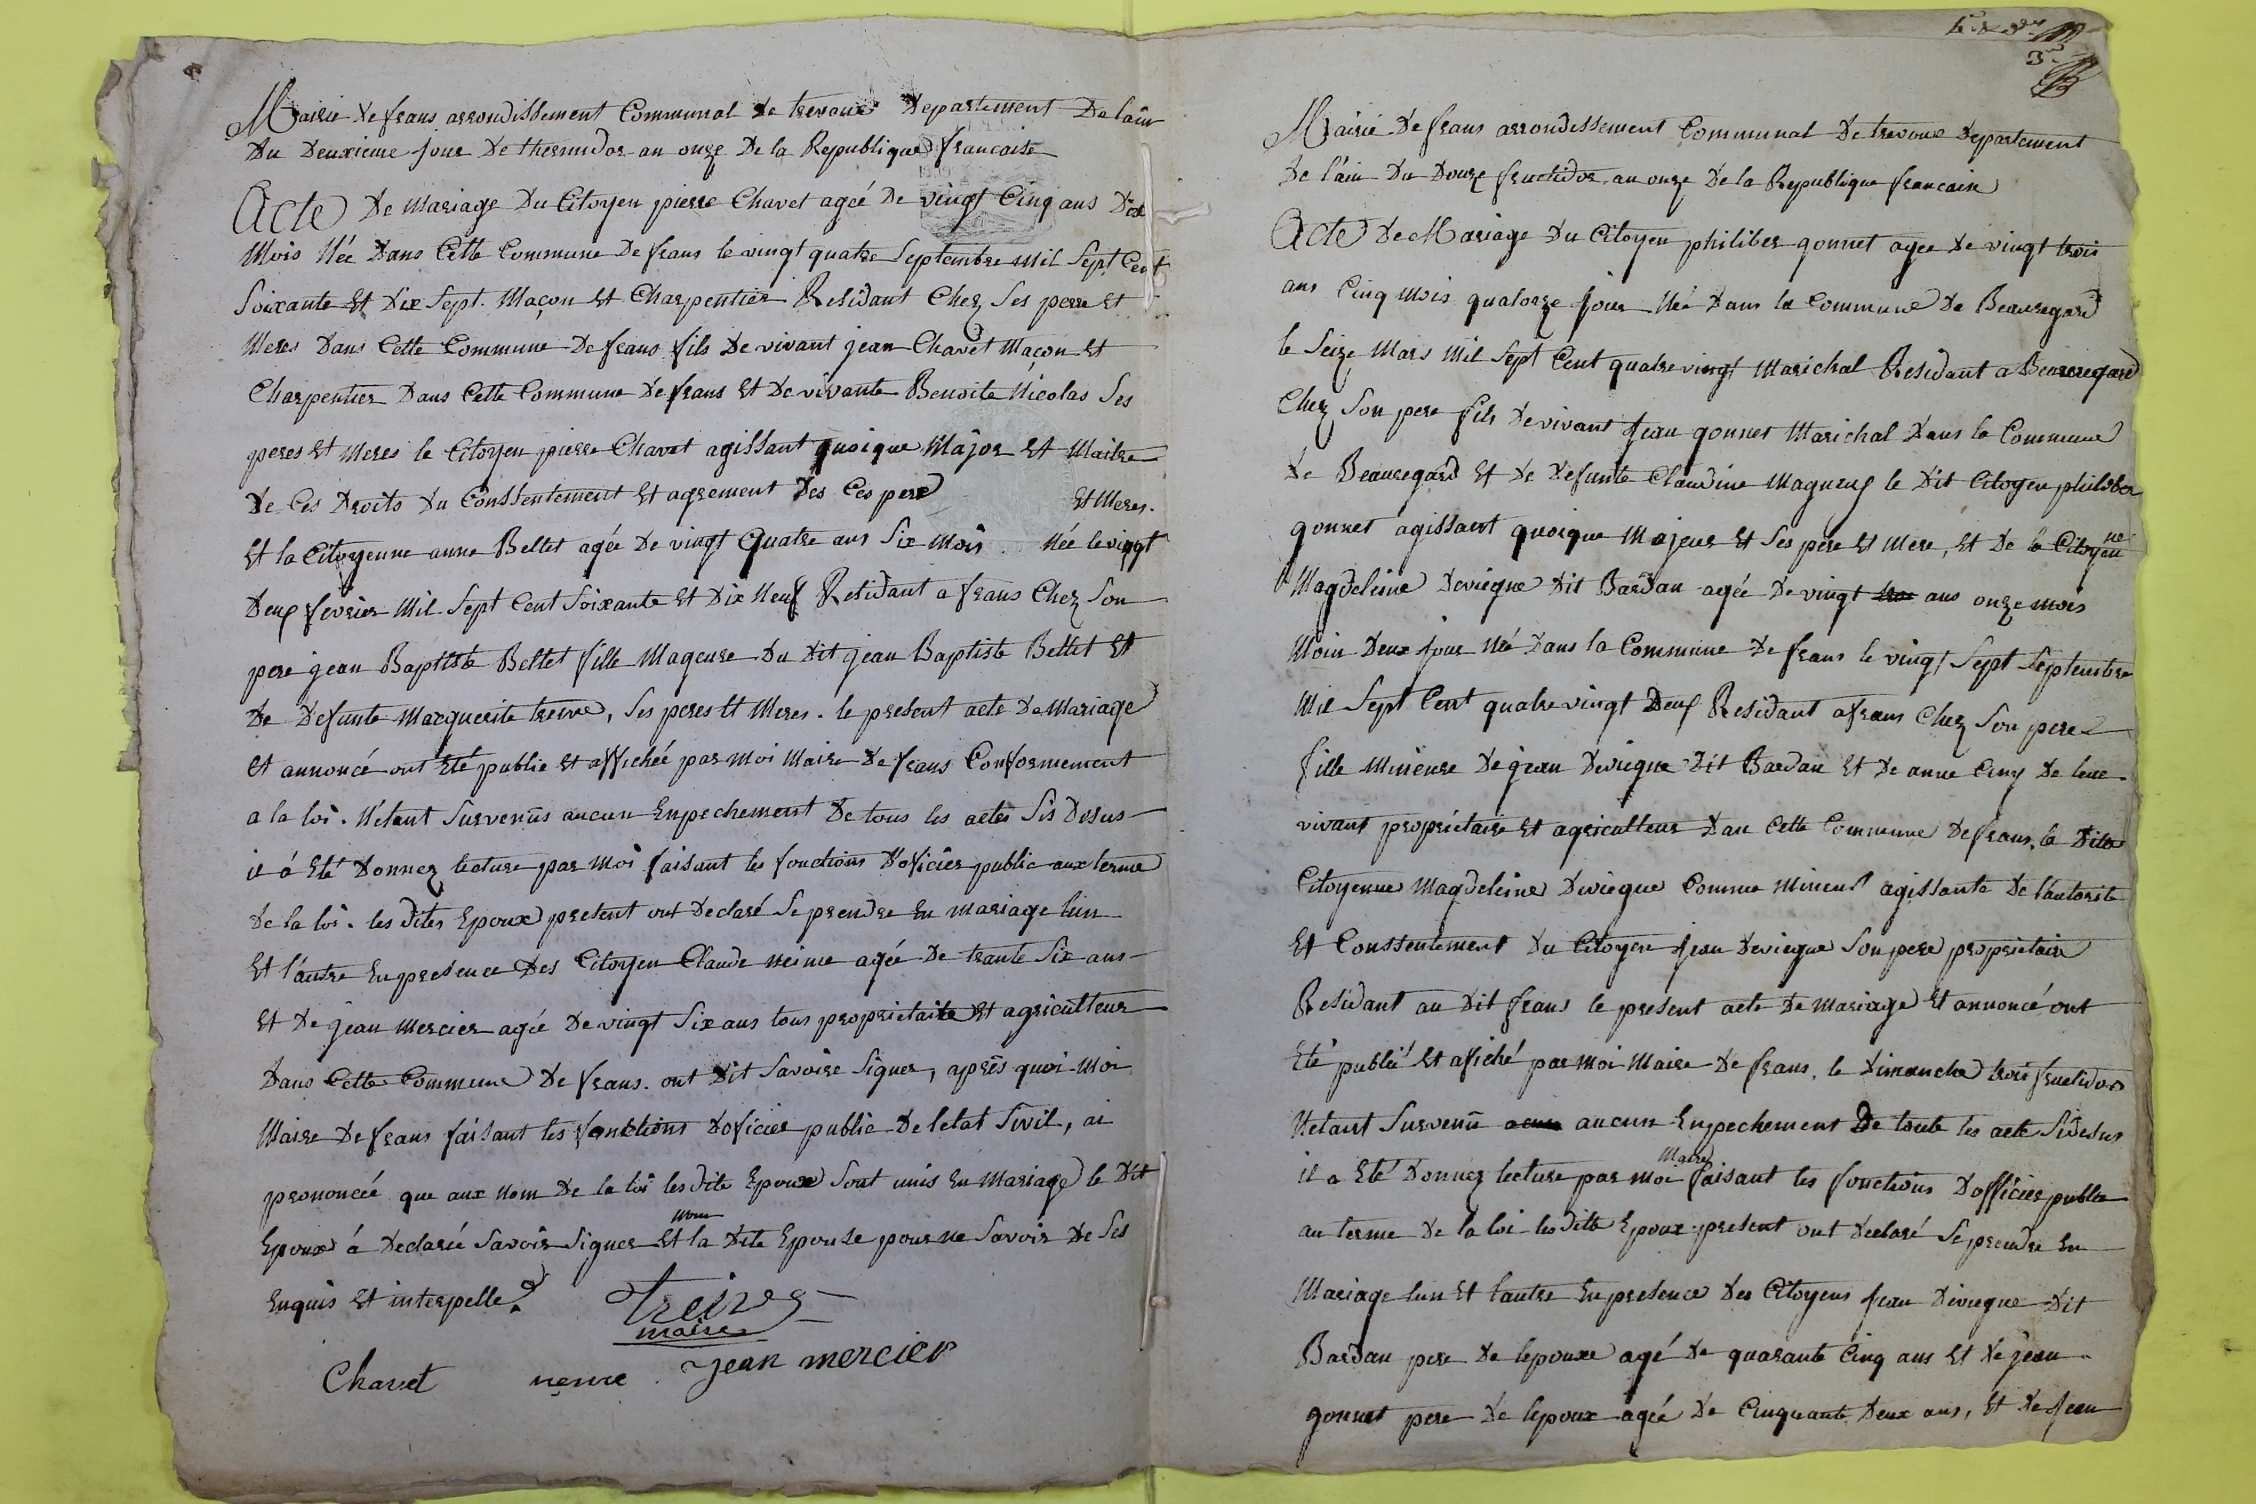 Mairie de frans arrondissement Communal de trevoux Departement De lain
Du Deuxieme jour De thermidor an onze De la Republique francaise
Acte De Mariage Du Citoyen pierre Chavet ageé De vingt Cinq ans Dix
Mois Née Dans Cette Commune De frans le vingt quatre Septembre Mil Sept Cent
Soixante Et Dix Sept. Maçon Et Charpentier Residant Chez Ses pere Et
Meres Dans Cette Commune De frans fils De vivant jean Chavet Macon Et
Charpentier Dans Cette Commune De frans Et De vivante Benoite Nicolas Ses
peres Et Meres le Citoyen pierre Chavet agissant quoique Major Et Maitre
De Ces Droits Du Conssentement Et agrement Des Ces pere Et Meres.
Et la Citoyenne anne Bellet agée De vingt Quatre ans Six Mois Née le vingt
Deux fevrier Mil Sept Cent Soixante Et Dix Neuf Residant a frans Chez Son
pere jean Baptiste Bellet fille Mageure Du Dit jean Baptiste Bellet Et
De Defunte Marguerite treive, Ses peres Et Meres. le present acte De Mariage
Et annoncé ont Eté publie Et affichée par Moi Maire De frans Conformement
a la loi. N'etant Survenus aucun Enpechement De tous les actes Sis Desus
il á Eté Donnez lecture par Moi faisant les fonctions D'oficier public aux terme
De la loi. les dites Epoux present ont Declaré Se prendre En Mariage lun
Et l'autre En presence Des Citoyen Claude neime agée De trante Six ans
Et De jean Mercier agée De vingt Six ans tous proprietaite Et agriculteur
Dans Cette Commune De frans. ont Dit Savoire Signer, aprês quoi Moi
Maire De frans faisant les fonctions Doficier public De letat Sivil, ai
prononcée que aux Nom De la loi les dite Epoux Sont unis En Mariage le Dit
Epoux á Declarée Savoir Signer Et non la Dite Epouse pour ne Savoir De Ses
Enquis Et interpelle.
Treives
maire
Chavet neme jean mercier
Mairie De frans arrondissement Communal De trevoux Departement
De l'ain Du Douze fructidor an onze De la Republique francaise
Acte De Mariage Du Citoyen philiber gonnet agee De vingt trois
ans Cinq Mois quatorze jour Née Dans la Commune De Beauregard
le Seize Mars Mil Sept Cent quatre vingt Marichal Residant a Beauregard
Chez Son pere fils De vivant Jean gonnet Marichal Dans la Commune
De Beauregard Et De Defunte Claudine Magneux le Dit Citoyen philiber
gonnet agissant quoique Majeur Et Ses pere Et Mere, Et De la Citoyenne
Magdeleine Devieque Dit Bardan agée De vingt ans onze mois
Moin Deux jour Née Dans la Commune De frans le vingt Sept Septembre
Mil Sept Cent quatre vingt Deux Residant a frans Chez Son pere
fille Mineure De jean Devieque Dit Bardan Et De anne Cuny De leur
vivant proprietaire Et agriculteur Dan Cette Commune De frans. la Dite
Citoyenne Magdeleine Devieque Comme Mineur agissante De l'autorite
Et Conssentement Du Citoyen Jean Devieque Son pere proprietaire
Residant au Dit frans le present acte De Mariage Et annoncé ont
Eté publié Et afiché par Moi Maire De frans. le Dimanche trois fructidor
Netant Survenu aucun Enpechement De toute les acte Sidesus
il a Eté Donnez lecture par Moi Maire faisant les fonctions Dofficier public
au terme De la loi les dite Epoux present ont Declaré Se prendre En
Mariage lun Et lautre En presence Des Citoyens Jean Devieque Dit
Bardan pere De lepouxe agé De quarante Cinq ans Et De jean
gonnet pere De lepoux agée De Cinquante Deux ans, Et De Jean